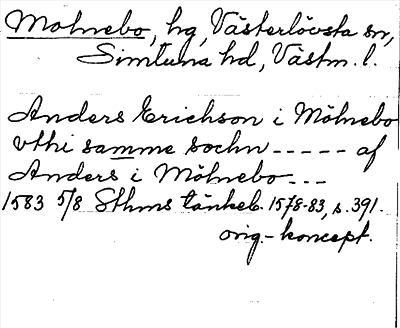 Molnebo, hg, Västerlövsta sn,
Simtuna hd, Västm. l.
Anders Erichson i Mölnebo
vthi samme sochn ----- af
Anders i Mölnebo ---
1583 5/8 Sthms tänkeb. 1578-83, s. 391.
orig.-koncept.